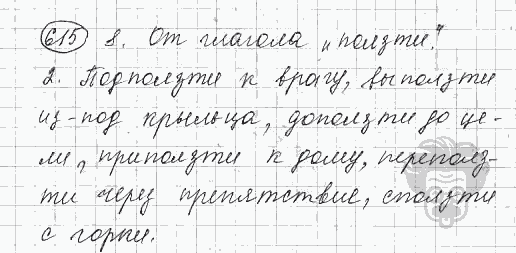 615 1. От глагола „ползти."
2. Подползти к врагу, выползти
из-под крыльца, доползти до це-
ли, приползти к дому, переполз-
ти через препятствие, сползти
с горки.